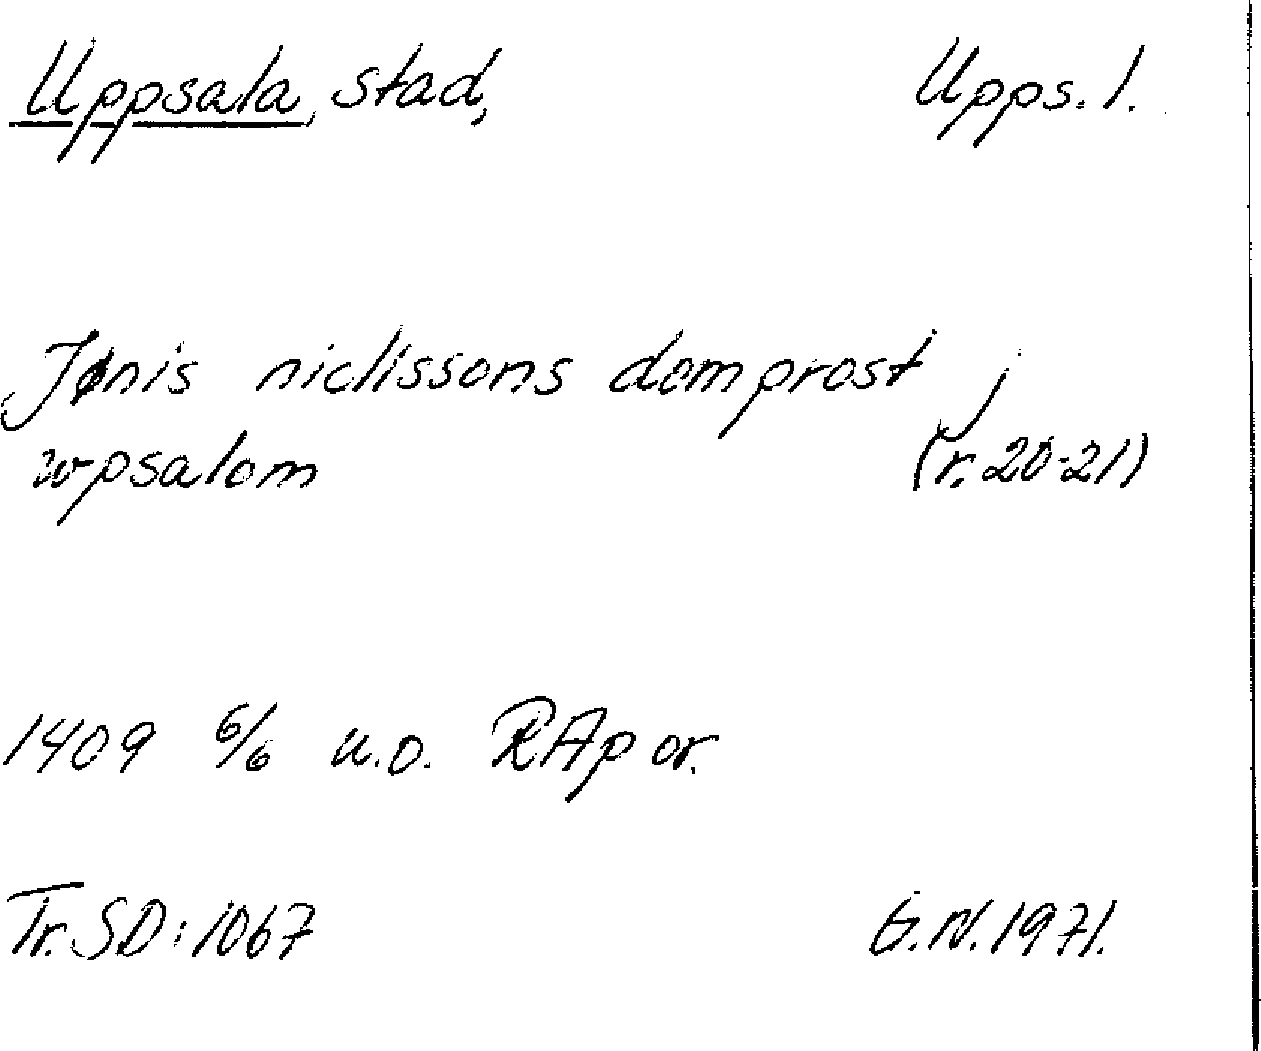 Uppsala, stad, Upps. l.
Jønis niclissons domprost j
wpsalom (r. 20-21)
1409 6/6 u.o. RAp or.
Tr. SD: 1067 G.N. 1971.